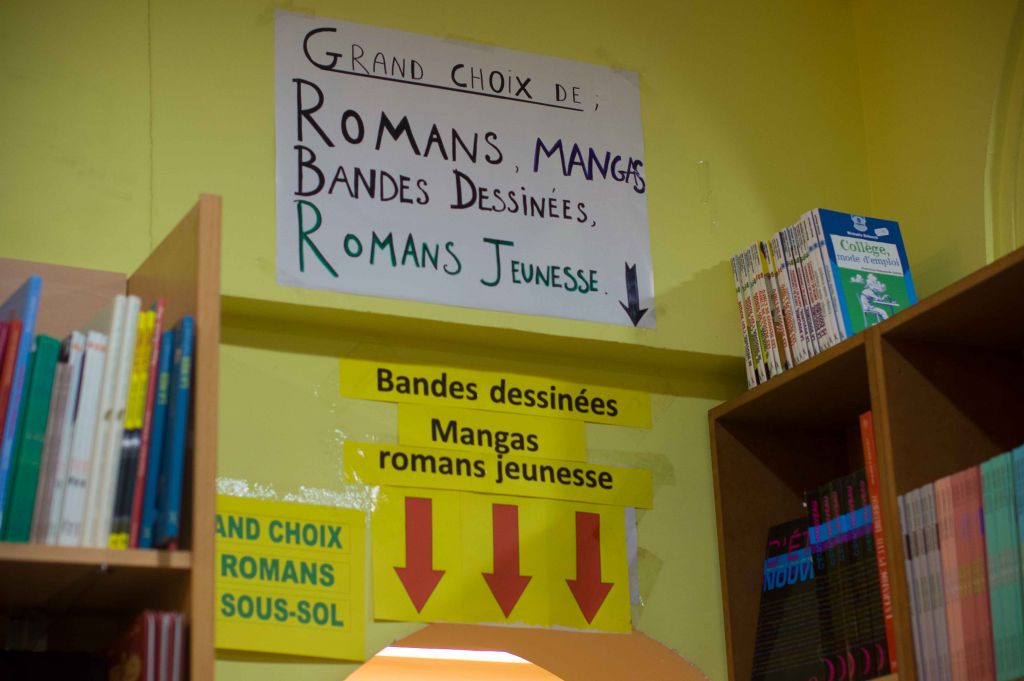 GRAND CHOIX DE ;
ROMANS, MANGAS
BANDES DESSINÉES,
ROMANS JEUNESSE.
Collège,
mode d'emploi
Bandes dessinées
Mangas
romans jeunesse
AND CHOIX
ROMANS
SOUS-SOL